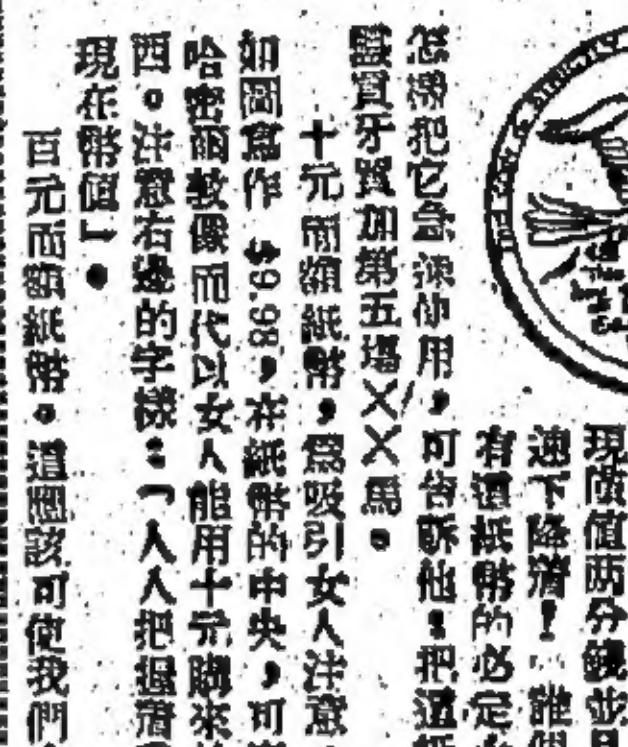 現價值两分錢並且
速下降着！誰個
有這紙幣的必定
怎樣把它急速使用，可告訴他！把這紙
牙買加第五塲××馬。
十元面額紙幣，爲吸引女人注意
如圖寫作 $9.98，在紙幣的中央，可
哈密爾敦像而代以女人能用十元購來
西。注意右邊的字樣：「人人把握着
現在幣值」。
百元面額紙幣。這應該可使我們